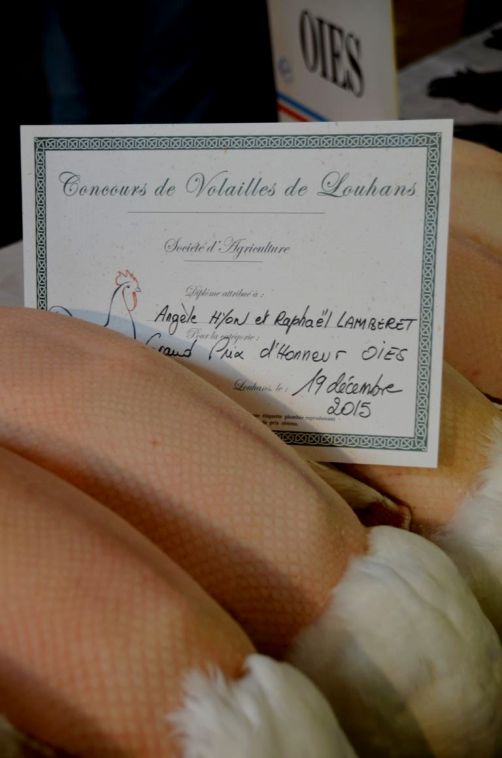 OIES
Concours de Volailles de Louhans
Société d'Agriculture
Diplôme attribué à :
Angèle HYON et Raphaël LAMBERET
Pour la catégorie :
Grand Prix d'Honneur OIES
Louhans, le : 19 décembre
2015